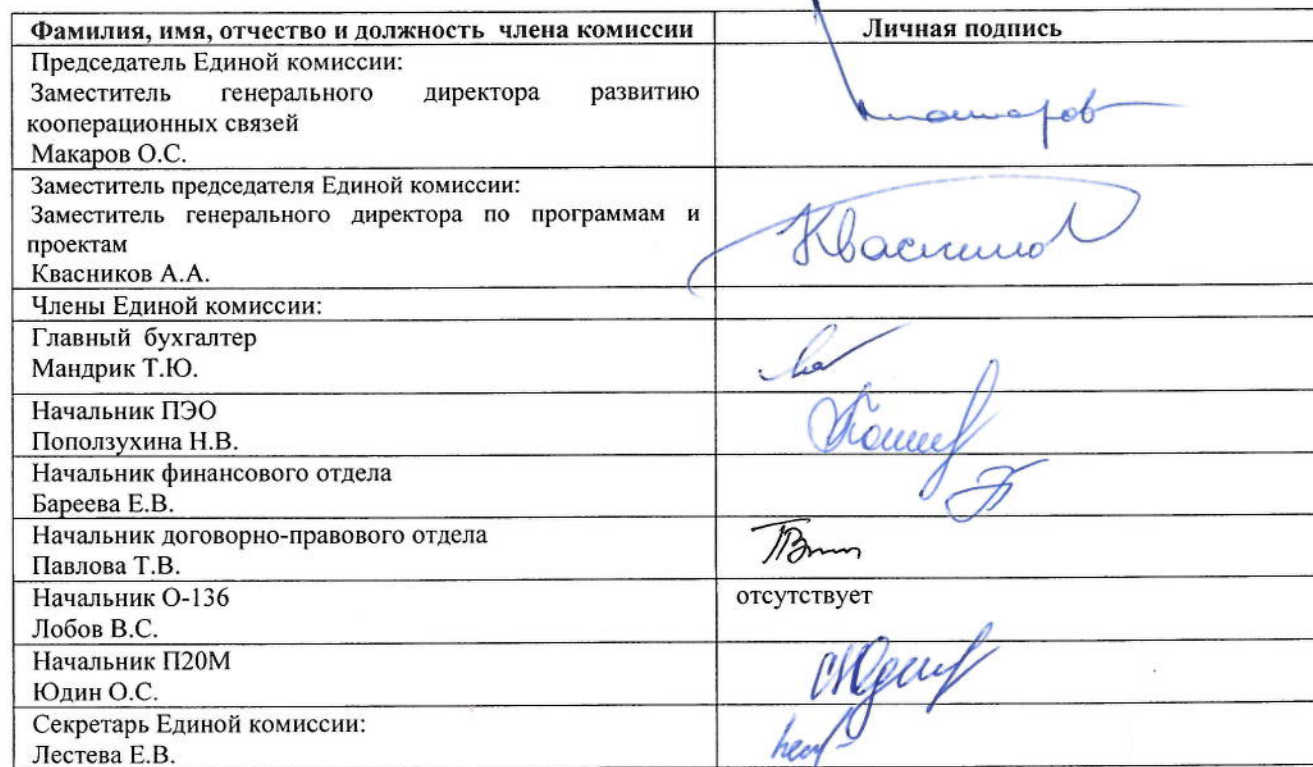 Фамилия, имя, отчество и должность члена комиссии
Личная подпись
Председатель Единой комиссии:
Заместитель генерального директора развитию
кооперационных связей
Макаров О.С.
Заместитель председателя Единой комиссии:
Заместитель генерального директора по программам и
проектам
Квасников А.А.
Члены Единой комиссии:
Главный бухгалтер
Мандрик Т.Ю.
Начальник ПЭО
Поползухина Н.В.
Начальник финансового отдела
Бареева Е.В.
Начальник договорно-правового отдела
Павлова Т.В.
Начальник О-136
отсутствует
Лобов В.С.
Начальник П20М
Юдин О.С.
Секретарь Единой комиссии:
Лестева Е.В.